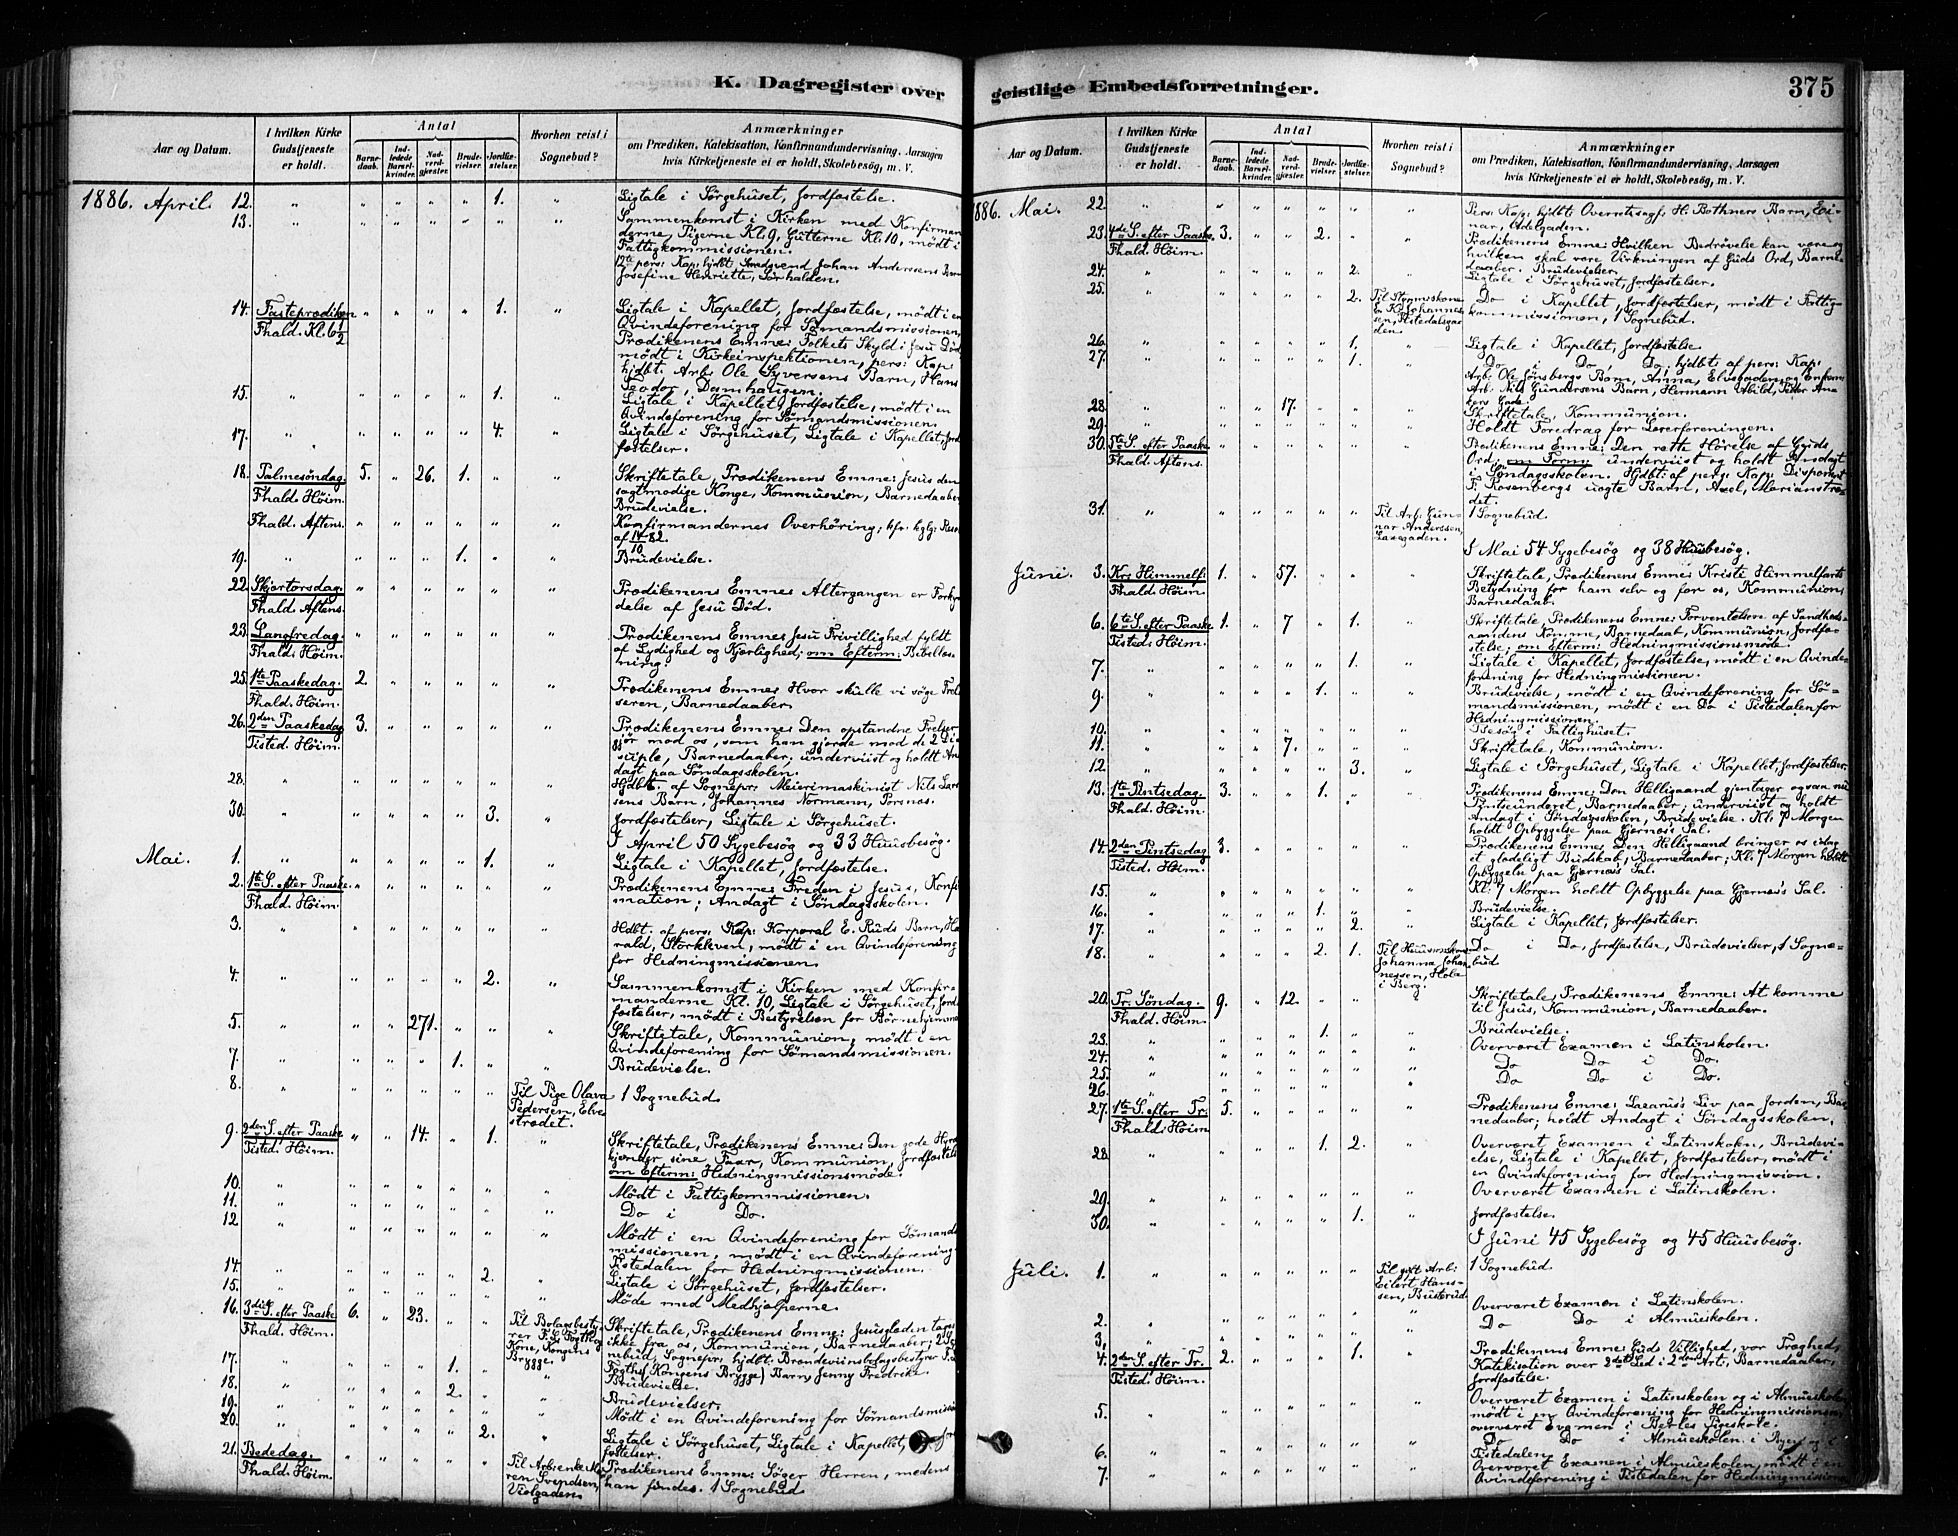 K. Dagregister over
Aar og Datum.
I hvilken Kirke Gudstjeneste er holdt.
Antal
Barnedaab.
Indledede Barselkvinder.
Nadverdgjester.
Brudevielser.
Jordfæstelser.
Hvorhen reist i Sognebud?
Anmærkninger
om Prædiken, Katekisation, Konfirmandundervisning, Aarsagen
hvis Kirketjeneste ei er holdt, Skolebesøg, m. V.
1886. April. 12. " " " " " 1. " Ligtale i Sørgehuset, Jordfæstelse.
13. " " " " " " " Sammenkomst i Kirken med Konfirman
derne, Pigerne Kl. 9, Gutterne Kl. 10, mødt i
Fattigkommissionen.
12te pers: Kap: hjdbt. Smedsvend Johan Anderssens Barn
Josefine Henriette, Sørhalden.
14. Fasteprædiken " " " " 1. " Ligtale i Kapellet, Jordfæstelse, mødt i en
Fhald. Kl. 6½ Qvindeforening for Sømandsmissionen,
Prædikenens Emne: Folkets Skyld i Jesu Død
mødt i Kirkeinspektionen, pers: Kap:
hjdbt. Arb. Ole Syversens Barn, Hans
Teodor, Damhaugen.
15. " " " " " 1. " Ligtale i Kapellet, Jordfæstelse, mødt i en
Qvindeforening for Sømandsmissionen.
17. " " " " " 4. " Ligtale i Sørgehuset, Ligtale i Kapellet, Jord
fæstelser.
18. Palmesøndag 5. " 26. 1. " " Skriftetale, Prædikenens Emne: Jesus den
Fhald. Høim. sagtmodige Konge, Kommunion, Barnedaaber
Brudevielse.
Fhald. Aftens. " " " " " " Konfirmandernes Overhøring; kfr. kglg: Reso
af 14/10 82.
19. " " " " 1. " " Brudevielse.
22. Skjærtorsdag. " " " " " " Prædikenens Emne: Altergangen er Forkyn
Fhald. Aftens. delse af Jesu Død.
23. Langfredag. " " " " " " Prædikenens Emne: Jesu Frivillighed fyldt
Fhald. Høim. af Lydighed og Kjærlighed; om Efterm: Bibellæs
ning.
25. 1ste Paaskedag. 2 " " " " " Prædikenens Emne: Hvor skulle vi søge Frel
Fhald. Høim. seren, Barnedaaber.
26. 2den Paaskedag 3. " " " " " Prædikenens Emne: Den opstandne Frelser
Tisted. Høim. gjør mod os, som han gjorde mod de 2 Di
siple, Barnedaaber; underviist og holdt An
dagt paa Søndagsskolen.
28. " " " " " " " Hjdbt. af Sognepr: Meierimaskinist Nils Lar
sens Barn, Johannes Normann, Porsnæs.
30. " " " " " 3. " Jordfæstelser, Ligtale i Sørgehuset.
I April 50 Sygebesøg og 33 Huusbesøg.
Mai. 1. " " " " " 1. " Ligtale i Kapellet, Jordfæstelse.
2. 1ste S. efter Paaske " " " " " " Prædikenens Emne: Freden i Jesus, Konfir
Fhald. Høim. mation; Andagt i Søndagsskolen.
3. " " " " " " " Hdbt. af pers: Kap: Korporal E. Ruds Barn, Ha
rald, Storkleven, mødt i en Qvindeforening
for Hedningmissionen.
4. " " " " " 2. " Sammenkomst i Kirken med Konfir
manderne Kl. 10, Ligtale i Sørgehuset, Jord
fæstelser, mødt i Bestyrelsen for Børnehjemmet
5. " " " 271. " " " Skriftetale, Kommunion, mødt i en
Qvindeforening for Sømandsmissionen.
7. " " " " 1. " " Brudevielse.
8. " " " " " " Til Pige Olava Pedersen, Elvestrædet. 1 Sognebud.
9. 2den S. efter Paaske " " 14. " 1. " Skriftetale, Prædikenens Emne: Den gode Hyrde
Tisted. Høim. kjender sine Faar, Kommunion, Jordfæstelse
om Efterm: Hedningmissionsmøde.
10. " " " " " " " Mødt i Fattigkommissionen.
11. " " " " " " " Do i Do.
12. " " " " " " " Mødt i en Qvindeforening for Sømands
missionen, mødt i en Qvindeforening
Tistedalen for Hedningmissionen.
14. " " " " " 2. " Ligtale i Sørgehuset, Jordfæstelser.
15. " " " " " " " Møde med Medhjælperne.
16. 3die S. efter Paaske 6. " 23. " " Til Bolagsbestyrer F. C. Fogth og Kone, Kongens Brygge. Skriftetale, Prædikenens Emne: Jesusglæden tages
Fhald. Høim. ikke fra os, Kommunion, Barnedaaber; 2 Sog
nebud, Sognepr: hjdbt. Brændeviinsbolagsbestyrer F. C.
Fogths (Kongens Brygge) Barn, Jenny Fredrekke
17. " " " " 1. " " Brudevielse.
18. " " " " 2. " " Brudevielser.
19. " " " " " " " Mødt i en Qvindeforening for Sømandsmission
20. " " " " " 2. " Ligtale i Sørgehuset, Ligtale i Kapellet, Jord
fæstelser.
21. Bededag. " " " " " Til Arb:enke Maren Svendsen, Violgaden. Prædikenens Emne: Søger Herren, medens
Fhald. Høim. han findes. 1 Sognebud.
geistlige Embedsforretninger.
375
Aar og Datum.
I hvilken Kirke Gudstjeneste er holdt.
Antal
Barnedaab.
Indledede Barselkvinder.
Nadverdgjester.
Brudevielser.
Jordfæstelser.
Hvorhen reist i Sognebud?
Anmærkninger
om Prædiken, Katekisation, Konfirmandundervisning, Aarsagen
hvis Kirketjeneste ei er holdt, Skolebesøg, m. V.
1886. Mai. 22. " " " " " " " Pers: Kap: hjdbt: Overretssagf: H. Bothners Barn, Ei-
nar, Adelgaden.
23. 4de S. efter Paaske. 3. " " 2. " " Prædikenens Emne: Hvilken Bedrøvelse kan være og
Fhald. Høim. hvilken skal være Virkningen af Guds Ord, Barne
daaber. Brudevielser.
24. " " " " " 2. " Ligtale i Sørgehuset, Jordfæstelser.
25. " " " " " 2. Do i Kapellet, Jordfæstelser, mødt i Fattig
kommissionen, 1 Sognebud.
26. " " " " " 1. " Ligtale i Kapellet, Jordfæstelse.
27. " " " " " 1. " Do i Do, Do; hjdbt: af pers: Kap:
Arb: Ole Jønsbergs Barn, Anna, Elvegaden,
Arb. Nils Gundersens Barn, Hermann Abild,
28. " " " 17. " " " Skriftetale, Kommunion.
29. " " " " " " " Holdt Foredrag for Lærerforeningen.
30. 5te S. efter Paaske " " " " " " Prædikenens Emne: Den rette Hørelse af Guds
Fhald. Aftens. Ord, om Form: underviist og holdt Andagt
i Søndagsskolen. Hjdbt: af pers: Kap: Disponent
F. Rosenbergs uægte Barn, Axel, Marianstræ
det.
31. " " " " " " Til Arb. Gunnar Anderssen, Laxegaden. 1 Sognebud.
I Mai 54 Sygebesøg og 38 Huusbesøg.
Juni. 3. Kr. Himmelf: 1. " 57. " " " Skriftetale, Prædikenens Emne: Kristi Himmelfarts
Fhald. Høim. Betydning for ham selv og for os, Kommunion,
Barnedaab.
6. 6te S. efter Paaske 1. " 7 " 1. " Skriftetale, Prædikenens Emne: Forventelsen af Sandheds-
Tisted. Høim. aandens Komme, Barnedaab, Kommunion, Jordfæ-
stelse; om Efterm: Hedningmissionsmøde.
7. " " " " " 1. " Ligtale i Kapellet, Jordfæstelse, mødt i en Qvinde-
forening for Hedningmissionen.
9. " " " " 1. " " Brudevielse, mødt i en Qvindeforening for Sø-
mandsmissionen, mødt i en Do i Tistedalen for
Hedningmissionen.
10. " " " " " " " Besøg i Fattighuset.
11. " " " 7. " " " Skriftetale, Kommunion.
12. " " " " " 3. " Ligtale i Sørgehuset, Ligtale i Kapellet, Jordfæstelser.
13. 1ste Pintsedag. 3. " " 1. " " Prædikenens Emne: Den Helligaand gjentager ogsaa nu
Fhald. Høim. Pintseunderet, Barnedaaber; underviist og holdt
Andagt i Søndagsskolen, Brudevielse. Kl. 7 Morgen
holdt Opbyggelse paa Gjærnæs's Sal.
14. 2den Pintsedag 3. " " " " " Prædikenens Emne: Den Helligaand bringer os idag
Tisted. Høim. et glædeligt Budskab, Barnedaaber; Kl. 7 Morgen holdt
Opbyggelse paa Gjærnæs's Sal.
15. " " " " " " " Kl. 7 Morgen holdt Opbyggelse paa Gjærnæs's Sal.
16. " " " " 1. " " Brudevielse.
17. " " " " " 2. " Ligtale i Kapellet, Jordfæstelser.
18. " " " " 2. 1. Til Johanna Johannessen, Hola i Berg. Do i Do, Jordfæstelse, Brudevielser, 1 Sogne-
bud
20. Tr. Søndag. 9. " 12. " " " Skriftetale, Prædikenens Emne: At komme
Fhald. Høim. til Jesus, Kommunion, Barnedaaber.
23. " " " " 1. " " Brudevielse.
24. " " " " " " " Overværet Examen i Latinskolen.
25. " " " " " " " Do Do i Do.
26. " " " " " " " Do Do i Do.
27. 1ste S. efter Tr. 5. " " " " " Prædikenens Emne: Lazarus's Liv paa Jorden, Bar
Fhald. Høim nedaaber; holdt Andagt i Søndagsskolen.
28. " " " " 1. 2. " Overværet Examen i Latinskolen, Brudevi-
else, Ligtale i Kapellet, Jordfæstelser, mødt i
en Qvindeforening for Hedningmission.
29. " " " " " " " Overværet Examen i Latinskolen.
30. " " " " " 1. " Jordfæstelse.
I Juni 45 Sygebesøg og 45 Huusbesøg.
Juli. 1. " " " " " " Til gift Arb: Eilert Hanssen, Busterud. 1 Sognebud.
2. " " " " " " " Overværet Examen i Latinskolen.
3. " " " " " " " Do Do i Almueskolen.
4. 2den S. efter Tr. 2. " " " 1. " Prædikenens Emne: Guds Villighed, vor Træghed,
Tisted. Høim. Katekisation over 2det Led i 2den Art., Barnedaaber,
Jordfæstelse.
5. " " " " " " " Overværet Examen i Latinskolen og i Almueskolen
mødt i en Qvindeforening for Hedningmissionen
overværet Examen i Pigeskole.
6. " " " " " " " Do Do i Almueskolen i
Tistedalen.
7. " " " " " " " Overværet Examen i Almueskolen, mødt i en
Qvindeforening i Tistedalen for Hedningmissionen